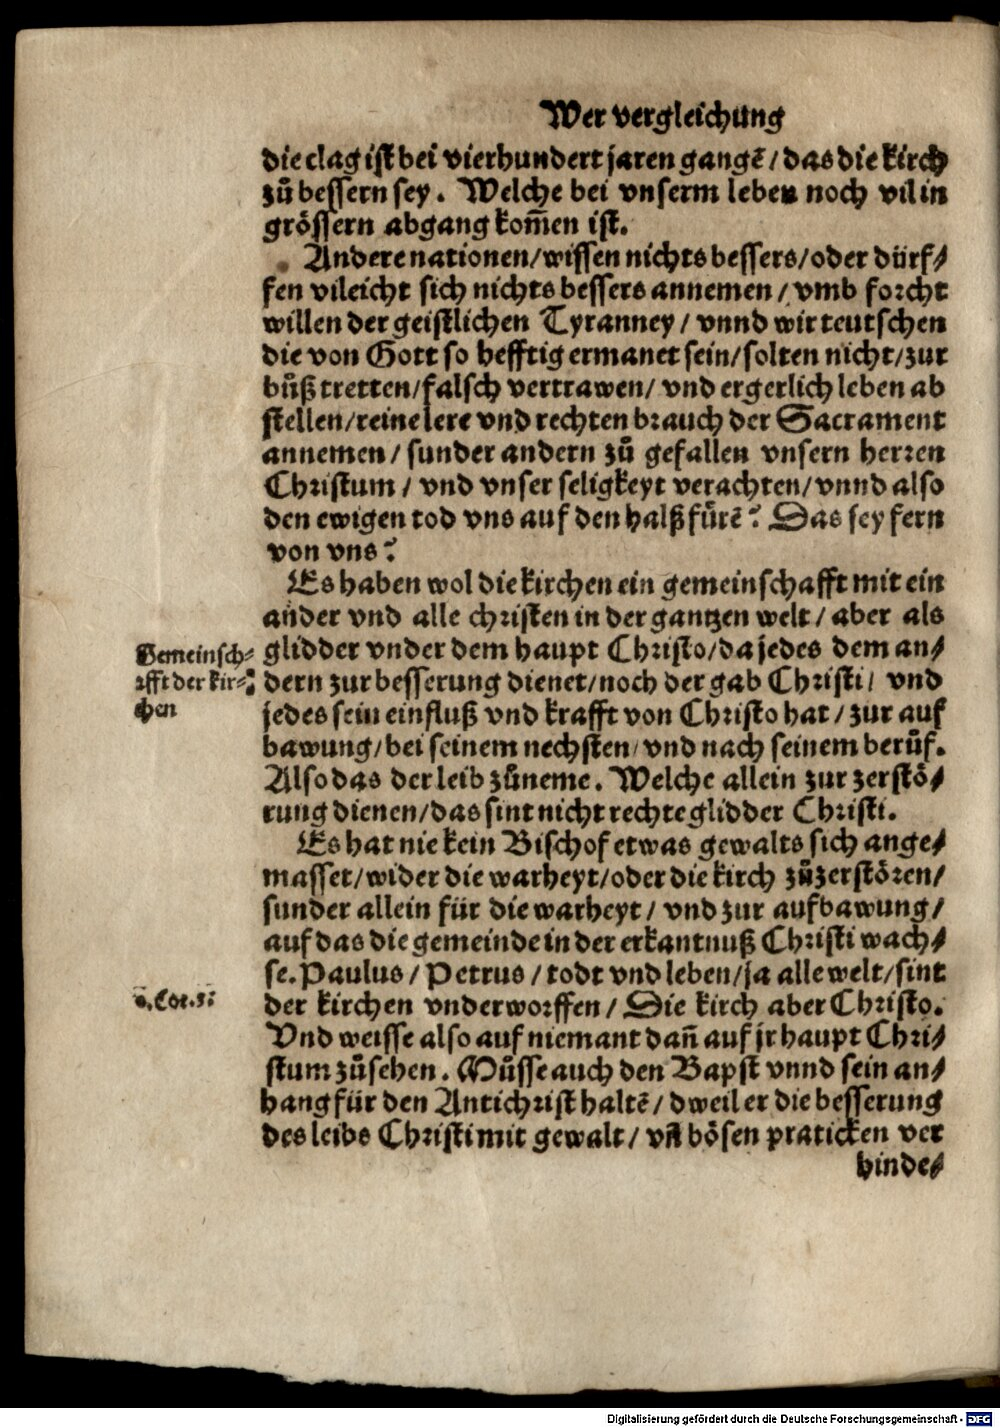 Wer vergleichung
die clag ist bei vierhundert jaren gangẽ / das die kirch
zů bessern sey. Welche bei vnserm leben noch vil in
grössern abgang kom̃en ist.
Andere nationen / wissen nichts bessers / oder dürf⸗
fen vileicht sich nichts bessers annemen / vmb forcht
willen der geistlichen Tyranney / vnnd wir teutschen
die von Gott so hefftig ermanet sein / solten nicht / zur
bůß tretten / falsch vertrawen / vnd ergerlich leben ab
stellen / reine lere vnd rechten brauch der Sacrament
annemen / sunder andern zů gefallen vnsern herren
Christum / vnd vnser seligkeyt verachten / vnnd also
den ewigen tod vns auf den halß fůrẽ? Das sey fern
von vns?
Es haben wol die kirchen ein gemeinschafft mit ein
ander vnd alle christen in der gantzen welt / aber als
Gemeinsch⸗
afft der kir⸗
chen
glidder vnder dem haupt Christo / da jedes dem an⸗
dern zur besserung dienet / noch der gab Christi / vnd
jedes sein einfluß vnd krafft von Christo hat / zur auf
bawung / bei seinem nechsten / vnd nach seinem berůf.
Also das der leib zůneme. Welche allein zur zerstö⸗
rung dienen / das sint nicht rechte glidder Christi.
Es hat nie kein Bischof etwas gewalts sich ange⸗
masset / wider die warheyt / oder die kirch zůzerstören /
sunder allein für die warheyt / vnd zur aufbawung /
auf das die gemeinde in der erkantnuß Christi wach⸗
se. Paulus / Petrus / todt vnd leben / ja alle welt / sint
Cor. 3.
der kirchen vnderworffen / Die kirch aber Christo.
Vnd weisse also auf niemant dañ auf jr haupt Chri⸗
stum zůsehen. Můsse auch den Bapst vnnd sein an⸗
hang für den Antichrist haltẽ / dweil er die besserung
des leibs Christi mit gewalt / vñ bösen praticken ver
hinde⸗
Digitalisierung gefördert durch die Deutsche Forschungsgemeinschaft - DFG